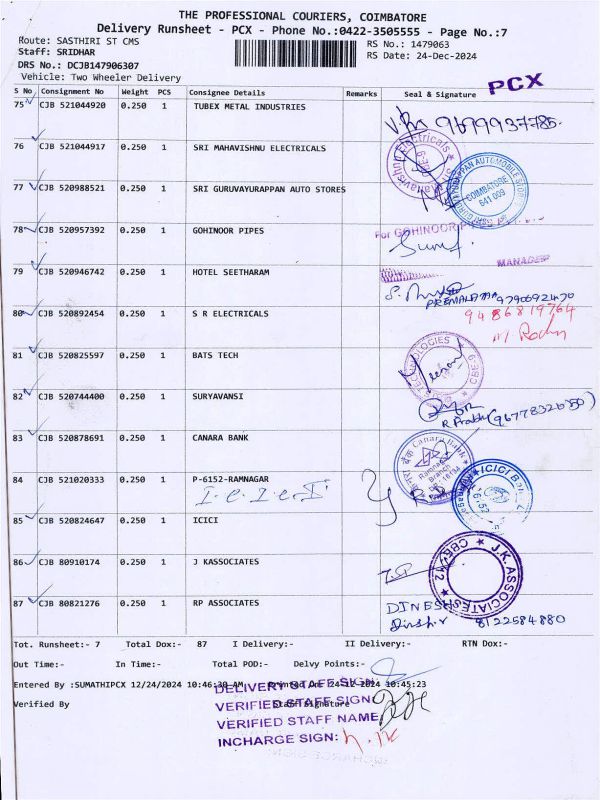 THE PROFESSIONAL COURIERS, COIMBATORE
Delivery Runsheet - PCX - Phone No.:0422-3505555 - Page No.:7
Route: SASTHIRI ST CMS
RS No.: 1479063
Staff: SRIDHAR
RS Date: 24-Dec-2024
DRS No.: DCJB147906307
Vehicle: Two Wheeler Delivery
PCX
S No Consignment No Weight PCS Consignee Details Remarks Seal & Signature
75 CJB 521044920 0.250 1 TUBEX METAL INDUSTRIES
9699937785
76 CJB 521044917 0.250 1 SRI MAHAVISHNU ELECTRICALS
77 CJB 520988521 0.250 1 SRI GURUVAYURAPPAN AUTO STORES
COIMBATORE
641 009
78 CJB 520957392 0.250 1 GOHINOOR PIPES
For GOHINOOR
MANAGER
79 CJB 520946742 0.250 1 HOTEL SEETHARAM
PREMALATHA 9790692470
80 CJB 520892454 0.250 1 S R ELECTRICALS
9486819764
81 CJB 520825597 0.250 1 BATS TECH
TECHNOLOGIES CBE-9
82 CJB 520744400 0.250 1 SURYAVANSI
R Prabhu (9677832650)
83 CJB 520878691 0.250 1 CANARA BANK
Canara Bank
Ramnagar
Branch
84 CJB 521020333 0.250 1 P-6152-RAMNAGAR
I.C.I.C.I
ICICI Bank
6152
85 CJB 520824647 0.250 1 ICICI
86 CJB 80910174 0.250 1 J KASSOCIATES
J.K. ASSOCIATES
CBE-12
87 CJB 80821276 0.250 1 RP ASSOCIATES
DINESH
8122584880
Tot. Runsheet:- 7 Total Dox:- 87 I Delivery:- II Delivery:- RTN Dox:-
Out Time:- In Time:- Total POD:- Delvy Points:-
Entered By :SUMATHIPCX 12/24/2024 10:46:30 AM Printed On: 24-12-2024 10:45:23
DELIVERY STAFF SIGN:
Verified By Staff Signature
VERIFIED STAFF SIGN
VERIFIED STAFF NAME
INCHARGE SIGN: